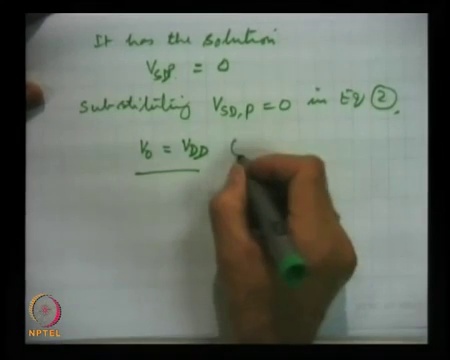 It has the solution
V_SD,P = 0
Substituting V_SD,P = 0 in Eq (2).
V_0 = V_DD (
NPTEL